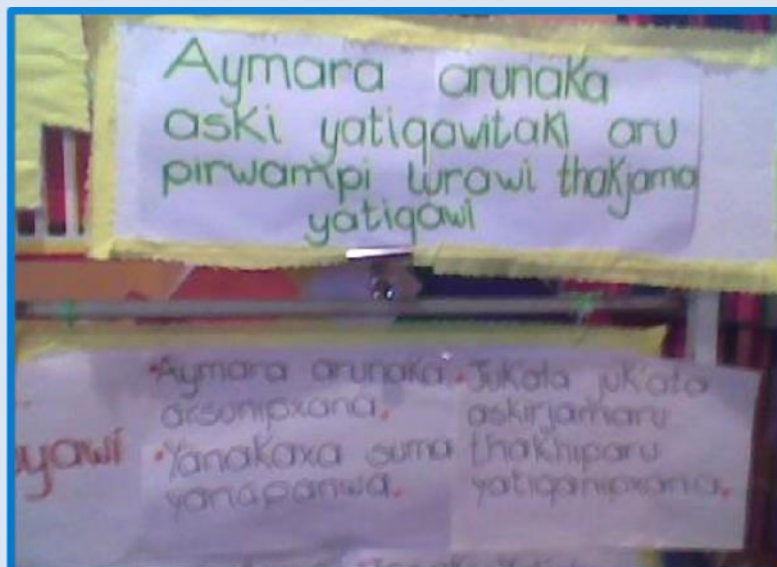 Aymara arunaka
aski yatiqawitaki aru
pirwampi lurawi thakjama
yatiqawi
yawi
•Aymara arunaka
arsunipxana.
•Yanakaxa suma
yanapanwa.
•Juk'ata juk'ata
askinjamaru
thakhiparu
yatiqanipxana.